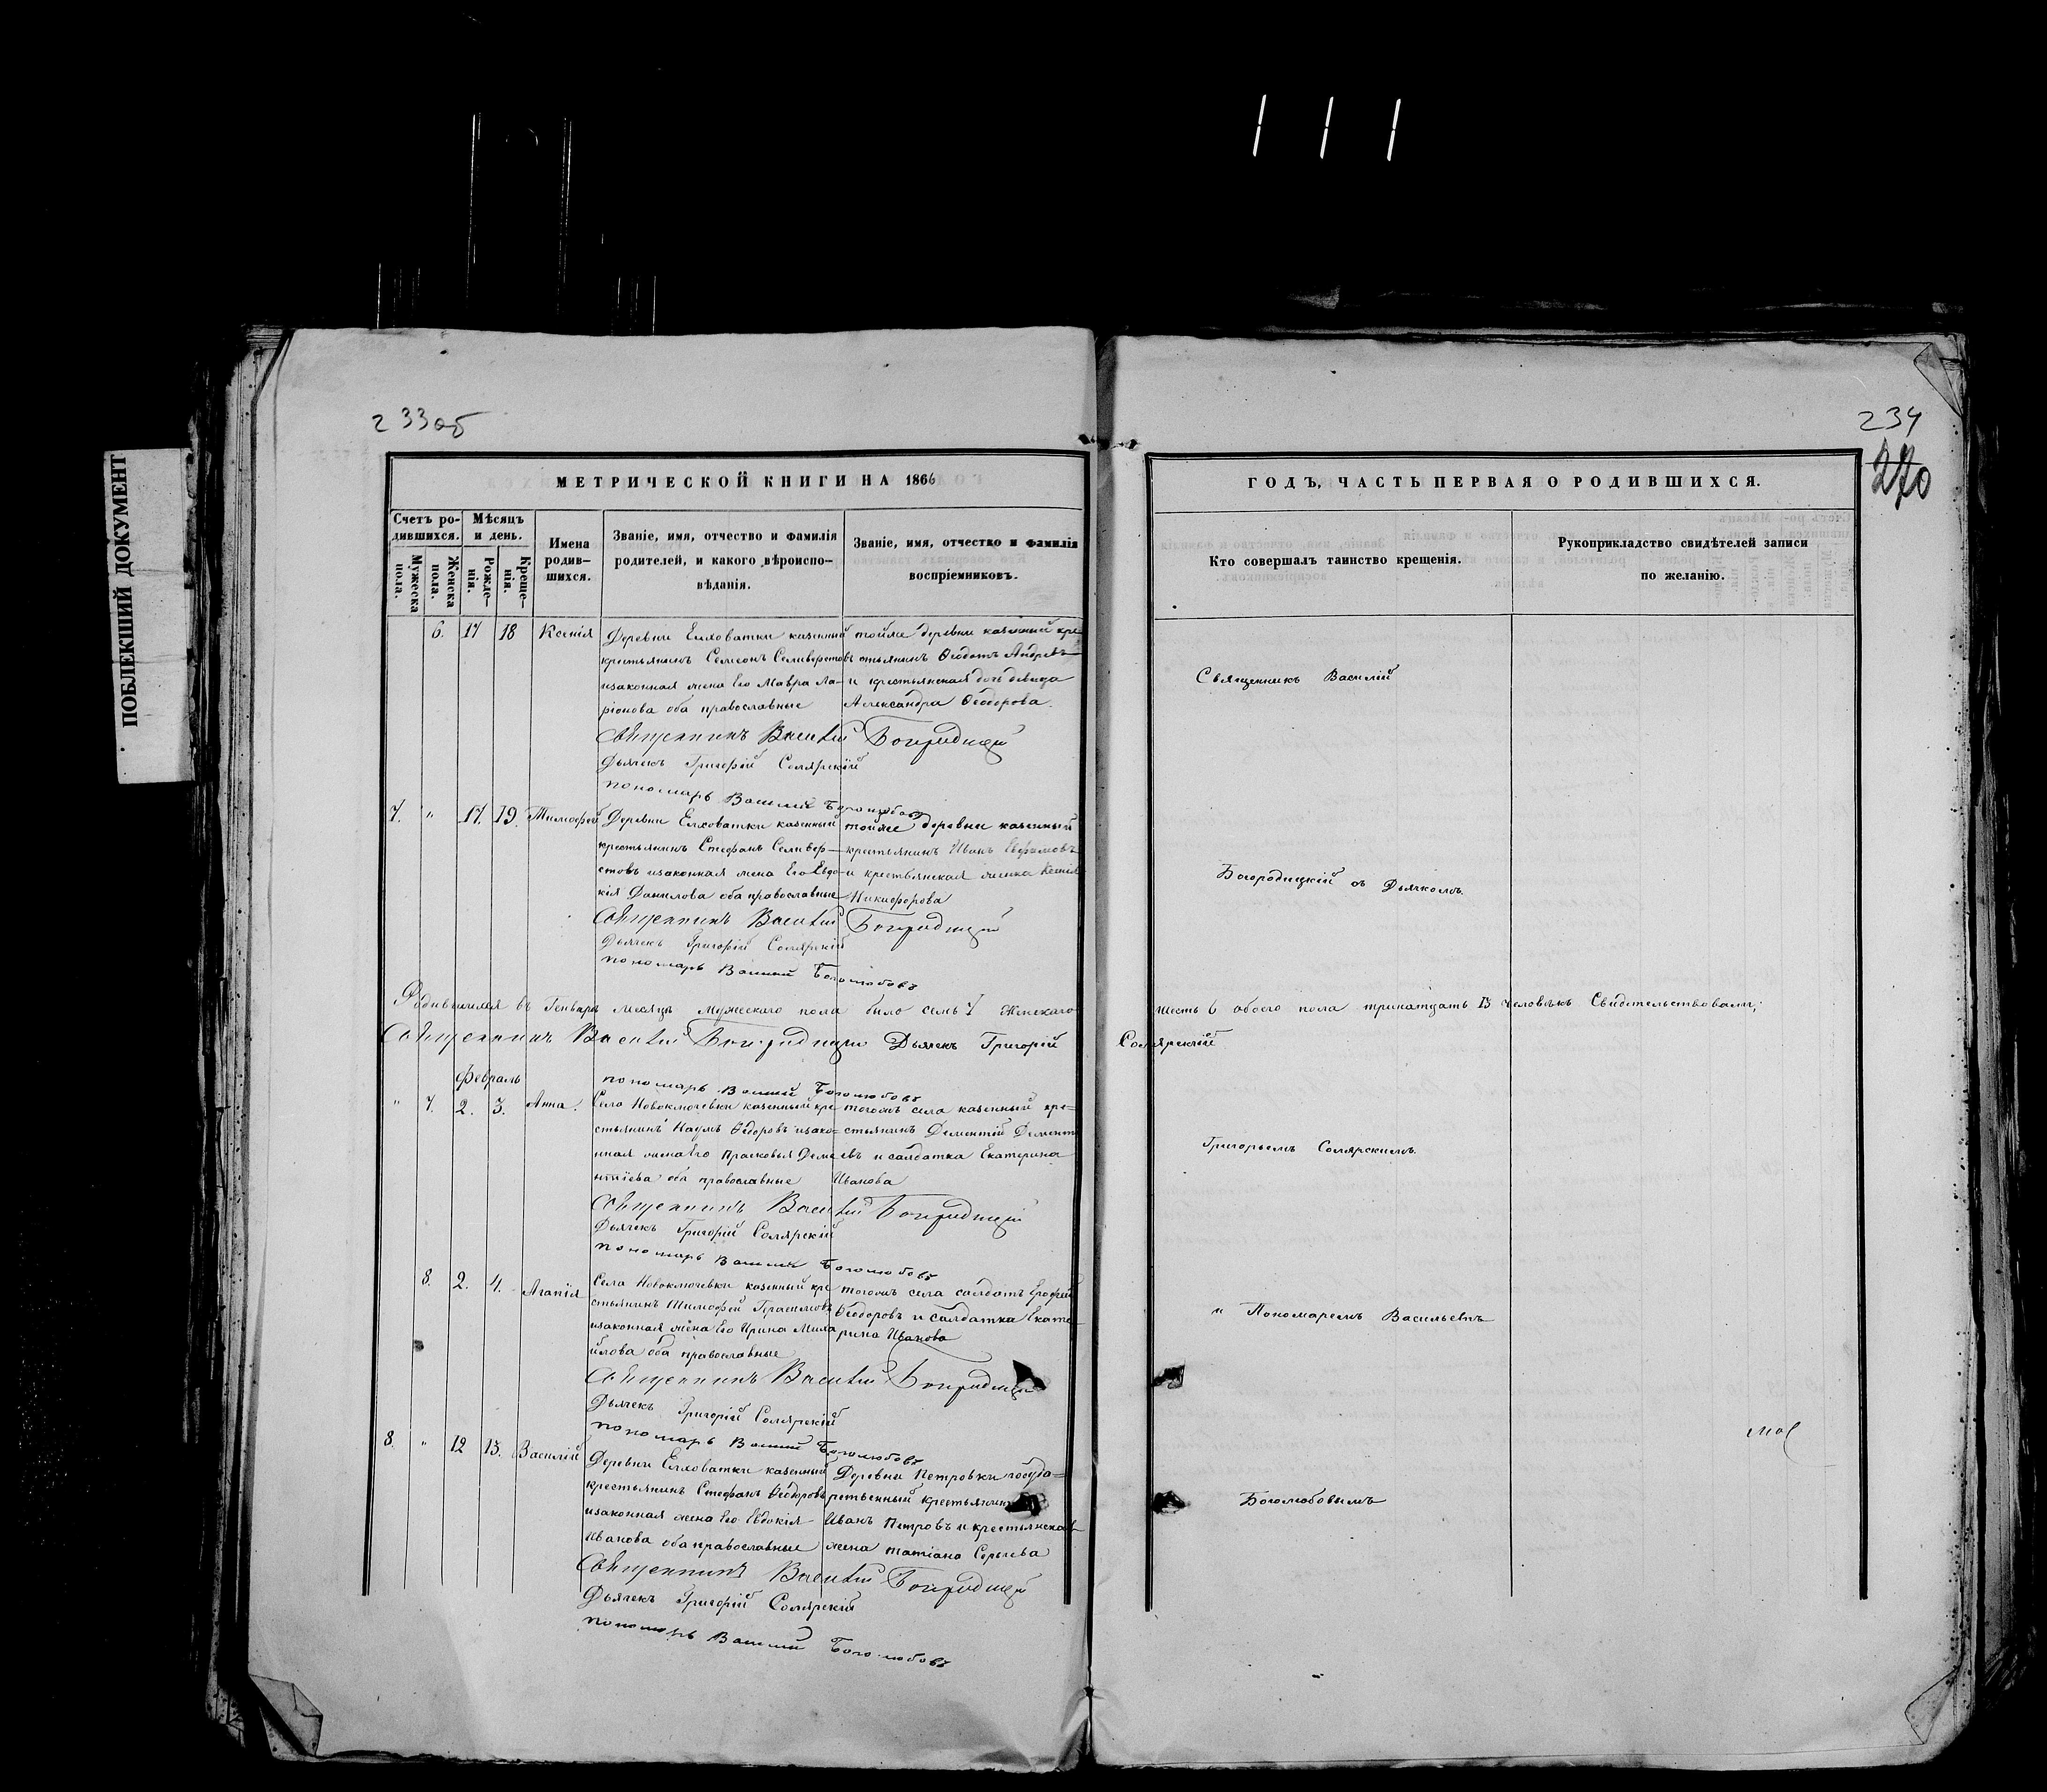 ПОБЛЕКШИЙ ДОКУМЕНТ
233об
234
270
МЕТРИЧЕСКОЙ КНИГИ НА 1866
ГОДЪ, ЧАСТЬ ПЕРВАЯ О РОДИВШИХСЯ.
Счетъ ро-
дившихся.
Мужеска пола.
Женска пола.
Мѣсяцъ
и день.
Рожде-
нія.
Креще-
нія.
Имена
родив-
шихся.
Званіе, имя, отчество и фамилія
родителей, и какого вѣроиспо-
вѣданія.
Званіе, имя, отчество и фамилія
воспріемниковъ.
Кто совершалъ таинство крещенія.
Рукоприкладство свидѣтелей записи
по желанію.
6. 17 18 Ксенія
Деревни Елховатки казенный
крестьянинъ Семеонъ Селиверстовъ
изаконная жена Его Мавра Ла-
ріонова оба православные
тойже деревни казенный кре
стьянинъ Ѳеодотъ Андревъ
и крестьянская дочь девица
Александра Ѳеодорова
Священникъ Василій Богородицкій
Дьячекъ Григорій Солярскій
пономарь Василий Боголюбовъ
7. " 17. 19. Тимофей
Деревни Елховатки казенный
крестьянинъ Стефанъ Селивер-
стовъ изаконная жена Его Евдо-
кія Данилова оба православные
тойже деревни казенный
крестьянинъ Иванъ Евфимовъ
и крестьянская женка Ксенія
Никифорова
Священникъ Василій Богородицкій
Дьячекъ Григорій Солярскій
пономарь Василий Боголюбовъ
Родившихся въ Генваре месяце мужескаго пола было семь 7 Женскаго
шесть 6 обоего пола тринатцать 13 человекъ Свидетельствовали;
Священникъ Василій Богородицкій Дьячекъ Григорій
Солярскій
пономарь Василий Боголюбовъ
Февраль
" 7. 2. 3. Анна.
Села Новоключевки казенный кре-
стьянинъ Наумъ Ѳедоровъ изако-
нная жена Его Прасковья Деме
нтіева оба православные
тогожъ села казенный кре-
стьянинъ Дементій Демент
евъ и салдатка Екатерина
Иванова
Священникъ Василій Богородицкій
Дьячекъ Григорій Солярскій
пономарь Василий Боголюбовъ
8. 2. 4. Агапія
Села Новоключевки казенный кре
стьянинъ Тимофей Герасимовъ
изаконная жена Его Ирина Миха
йлова оба православные
тогожъ села салдатъ Ерофей
Ѳеодоровъ и салдатка Екате-
рина Иванова
Священникъ Василій Богородицкій
Дьячекъ Григорій Солярскій
пономарь Василий Боголюбовъ
8. " 12 13. Василій
Деревни Елховатки казенный
крестьянинъ Стефанъ Ѳеодоровъ
изаконная жена Его Евдокія
Иванова оба православные
Деревни Петровки госуда-
рственный крестьянинъ
Иванъ Петровъ и крестьянская
жена татіана Сергиева
Священникъ Василій Богородицкій
Дьячекъ Григорій Солярскій
пономарь Василий Боголюбовъ
Священникъ Василій
Богородицкій съ Дьячкомъ
Григорьемъ Солярскимъ
и Пономаремъ Васильемъ
Боголюбовымъ